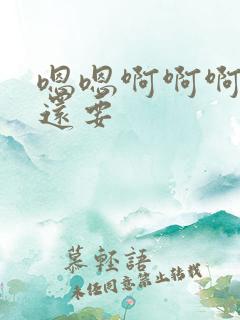 嗯嗯啊啊啊
還要
慕輕語
未经同意禁止转载